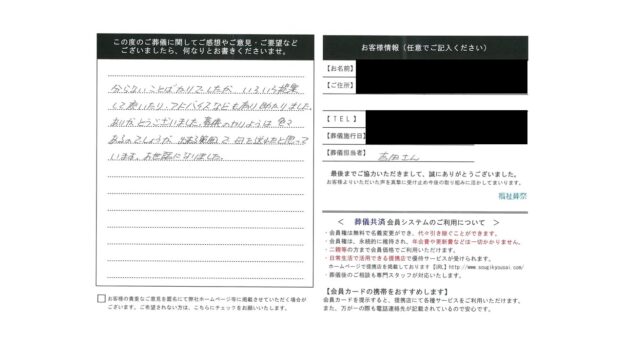 この度のご葬儀に関してご感想やご意見・ご要望など
ございましたら、何なりとお書きくださいませ。
分らないことばかりでしたが、いろいろ提案
して頂いたり、アドバイスなども有り助かりました。
ありがとうございました。葬儀のやりようは色々
あるのでしょうが、出来る範囲で
います。お世話になりました。
お客様の貴重なご意見を匿名にて弊社ホームページ等に掲載させていただく場合が
ございます。ご希望されない方は、こちらにチェックをお願いいたします。
お客様情報（任意でご記入ください）
【お名前】
【ご住所】
【TEL】
【葬儀施行日】
【葬儀担当者】 さん
最後までご協力いただきまして、誠にありがとうございました。
お客様よりいただいた声を真摯に受け止め今後の取り組みに活かしてまいります。
福祉葬祭
＜ 葬儀共済会員システムのご利用について ＞
・会員権は無料で名義変更ができ、代々引き継ぐことができます。
・会員権は、永続的に維持され、年会費や更新費などは一切かかりません。
・二親等の方まで会員価格でご利用いただけます。
・日常生活で活用できる提携店で優待サービスが受けられます。
ホームページで提携店を掲載しております【URL】http://www.sougikyousai.com/
・葬儀後のご相談も専門スタッフが対応いたします。
【会員カードの携帯をおすすめします】
会員カードを提示すると、提携店にて各種サービスをご利用いただけます。
また、万が一の際も電話連絡先が記載されているので安心です。